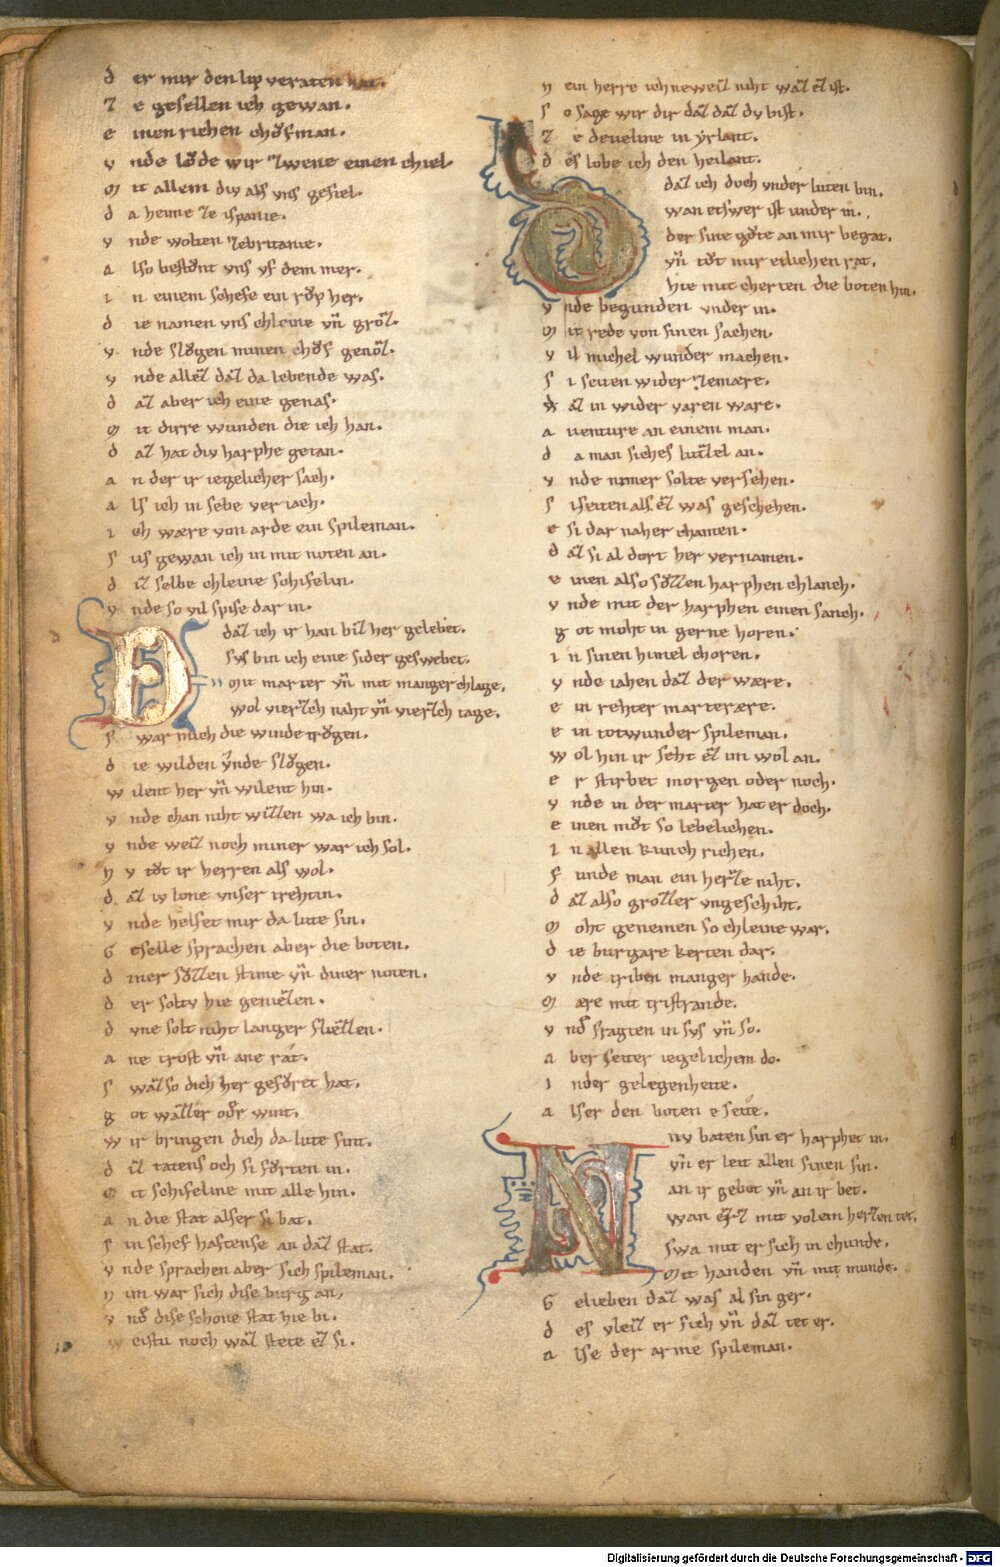 d er mir den lip veraten hat.
z e gesellen ich gewan.
e inen richen chofman.
v nde lvde wir zwene einen chiel
m it allem div als vns gefiel.
d a heime ze ispanie.
v nde wolten zebritanie.
a lso bestvnt vns vf dem mer.
i n einem schefe ein rvp her.
d ie namen vns chleine vn groz.
v nde slvgen minen chof genoz.
v nde allez daz da lebende was.
d az aber ich eine genas.
m it dirre wunden die ich han.
d az hat div harphe getan.
a n der ir iegelicher sach.
a ls ich in selbe veriach.
i ch wære von arde ein spileman.
s us gewan ich in mit noten an.
d iz selbe chleine schifelin.
v nde so vil spise dar in.
D daz ich ir han biz her gelebet.
sus bin ich eine sider geswebet.
mit marter vn mit manger chlage.
wol vierzch naht vn vierzch tage.
s war mich die winde trvgen.
d ie wilden vnde slvgen.
w ilent her vn wilent hin.
v nde chan niht wizzen wa ich bin.
v nde weiz noch miner war ich sol.
n v tvt ir herren als wol.
d az iv lone vnser trehtin.
v nde helfet mir da lute sin.
G eselle sprachen aber die boten.
d iner svzzen stime vn diner noten.
d er soltv hie geniezen.
d vne solt niht langer fliezzen.
a ne trost vn ane rat.
s waz so dich her gefvret hat.
g ot wazzer oder wint.
w ir bringen dich da lute sint.
d iz tatens och si fvrten in.
m it schifeline mit alle hin.
a n die stat alser si bat.
s in schef haftense an daz stat.
v nde sprachen aber sich spileman.
n im war sich dise burg an,
v nd dise schone stat hie bi.
w eistu noch waz stete ez si.
n ein herre ich neweiz niht waz ez ist.
s o sage wir dir daz daz dv bist.
z e develine in yrlant.
d es lobe ich den heilant.
daz ich doch vnder luten bin.
wan etswer ist under in.,
der sine gvte an mir begat.
vn tvt mir etlichen rat.
hie mit cherten die boten hin.
v nde begunden vnder in.
m it rede von sinen sachen.
v il michel wunder machen.
s i seiten wider zemære.
d az in wider varen ware.
a venture an einem man.
d a man siches lutzel an.
v nde nimer solte versehen.
s iseiten als. ez was geschehen.
e si dar naher chamen.
d az si al dort her vernamen.
e inen also svzzen harphen chlanch.
v nde mit der harphen einen sanch.
g ot moht in gerne horen.
i n sinen himel choren.
v nde iahen daz der wære.
e in rehter marterære.
e in totwunder spileman.
w ol hin ir seht ez im wol an.
e r stirbet morgen oder noch.
v nde in der marter hat er doch.
e inen mvt so lebelichen.
i n allen kunch richen.
f unde man ein herze niht.
d az also grozzer vngeschiht.
m oht genemen so chleine war.
d ie burgare kerten dar.
v nde triben manger hande.
m ære mit tristrande.
v nd fragten in sus vn so.
a ber seiter iegelichem do.
i nder gelegenheite.
a lser den boten e seite.
N nv baten sin er harphet in.
vn er leit allen sinen sin.
an ir gebot vn an ir bet.
wan erz mit volem herzen tet.
swa mit er sich in chunde.
mit handen vn mit munde.
G elieben daz was al sin ger.
d es vleiz er sich vn daz tet er.
a lse der arme spileman.
Digitalisierung gefördert durch die Deutsche Forschungsgemeinschaft - DFG